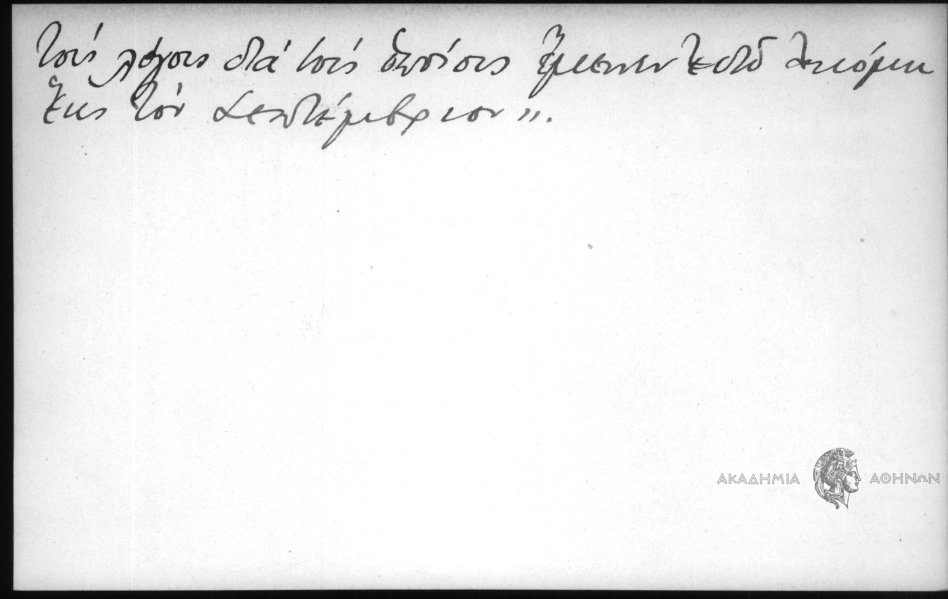 τούς λόγους διά τούς ὁποίους ἔμεινεν ἐδῶ ἀκόμη
ἕως τόν Σεπτέμβριον».
ΑΚΑΔΗΜΙΑ ΑΘΗΝΩΝ